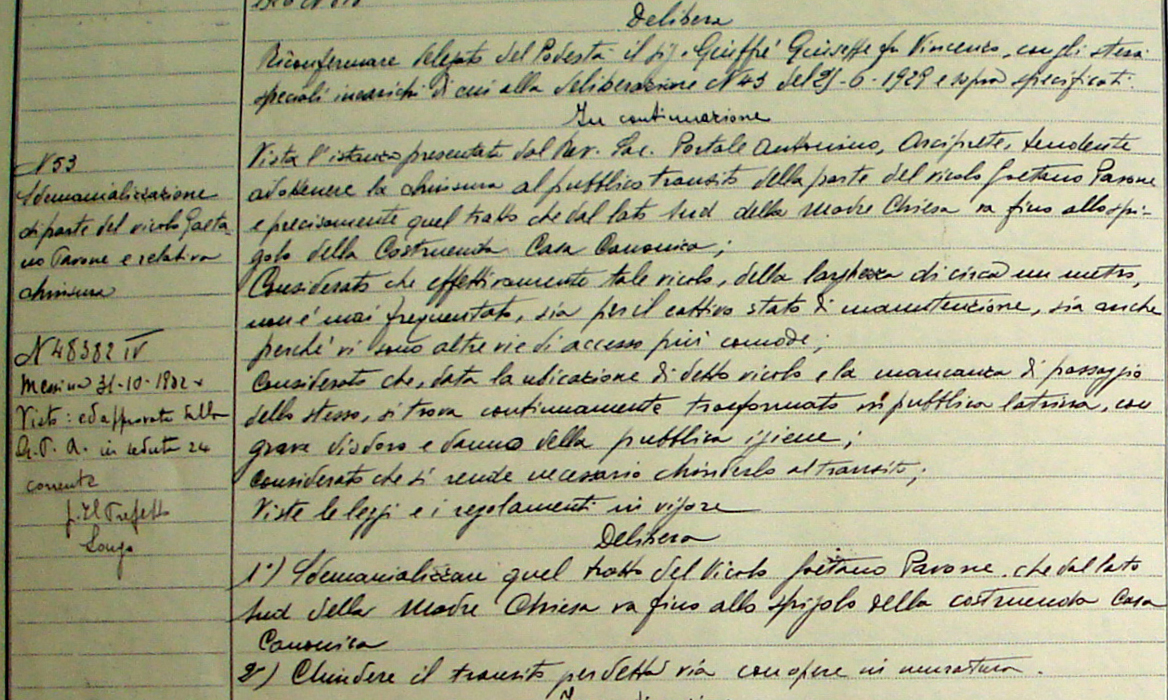 Delibera
Riconfermare delegato del Podestà il sig. Giuffré Giuseppe fu Vincenzo, con gli stessi
speciali incarichi di cui alla deliberazione N 43 del 25-6-1929 e sopra specificati.
In continuazione
Vista l'istanza presentata dal Rev. Sac. Portale Antonino, Arciprete, tendente
ad ottenere la chiusura al pubblico transito della parte del vicolo Gaetano Pavone
e precisamente quel tratto che dal lato Sud della Madre Chiesa va fino allo spi-
golo della Costruenda Casa Canonica;
Considerato che effettivamente tale vicolo, della larghezza di circa un metro,
non é mai frequentato, sia per il cattivo stato di manutenzione, sia anche
perché vi sono altre vie di accesso più comode;
Considerato che, data la ubicazione di detto vicolo e la mancanza di passaggio
dello stesso, si trova continuamente trasformato in pubblica latrina, con
grave disdoro e danno della pubblica igiene;
Considerato che si rende necessario chiuderlo al transito;
Viste le leggi e i regolamenti in vigore
Delibera
1°) Sdemanializzare quel tratto del Vicolo Gaetano Pavone che dal lato
Sud della Madre Chiesa va fino allo spigolo della costruenda Casa
Canonica
2°) Chiudere il transito per detta via con opere in muratura.
N 53
Sdemanializzazione
di parte del vicolo Gaeta-
no Pavone e relativa
chiusura
N 48382 IV
Messina 31-10-1932
Visto: ed approvata dalla
G. P. A. in seduta 24
corrente
p. Il Prefetto
Longo